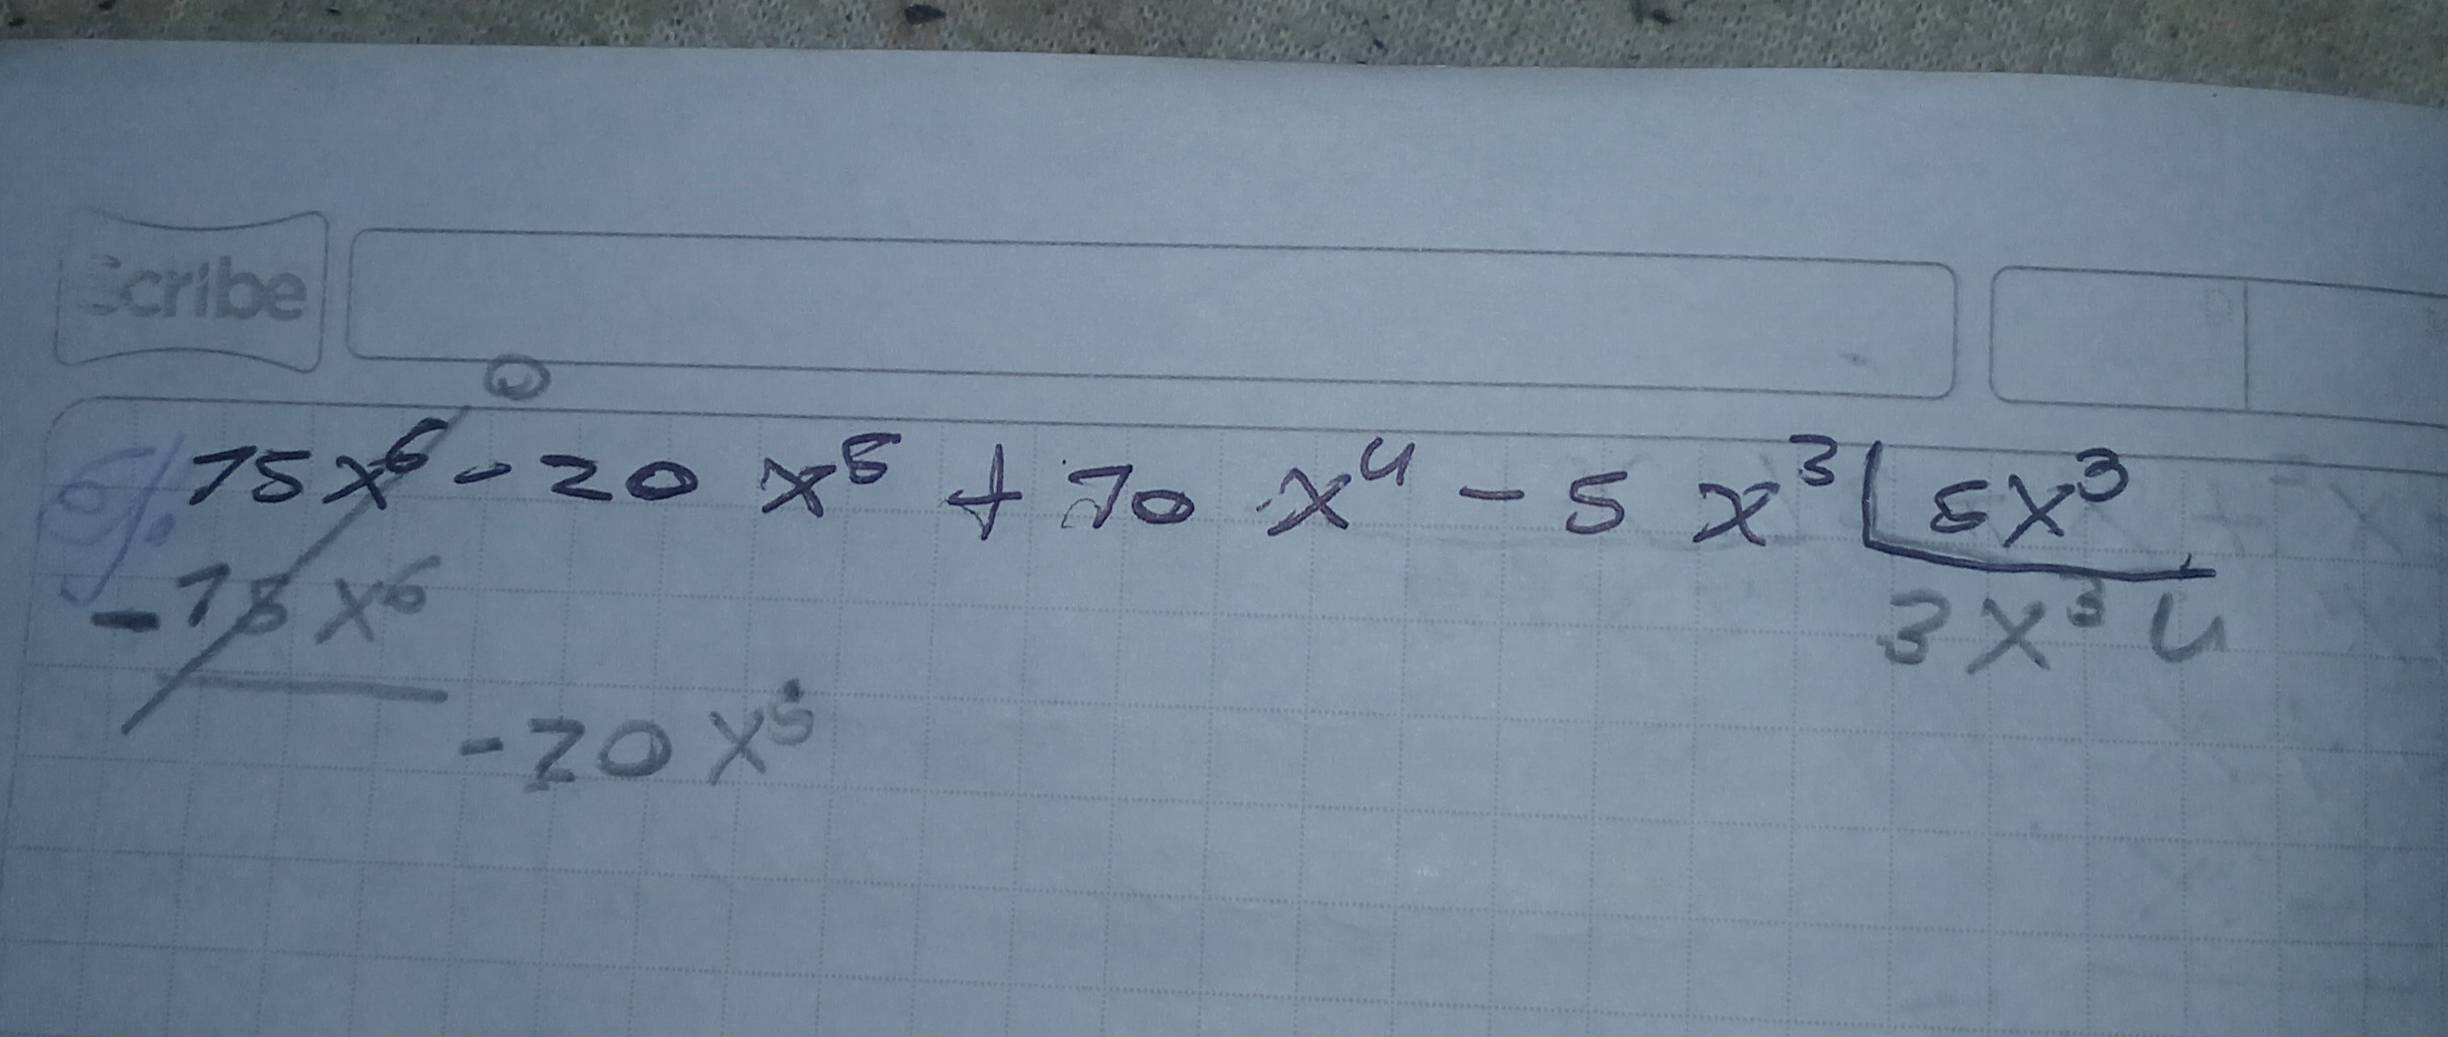 Scribe
15x⁶ - 20x⁵ + 10x⁴ - 5x³ | 5x³
-15x⁶ 3x³ 4
-20x⁵